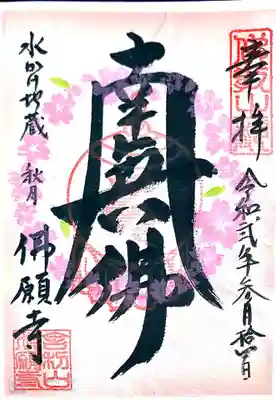 奉拝
令和弐年参月拾四日
南無佛
水かけ地蔵 秋月
佛願寺